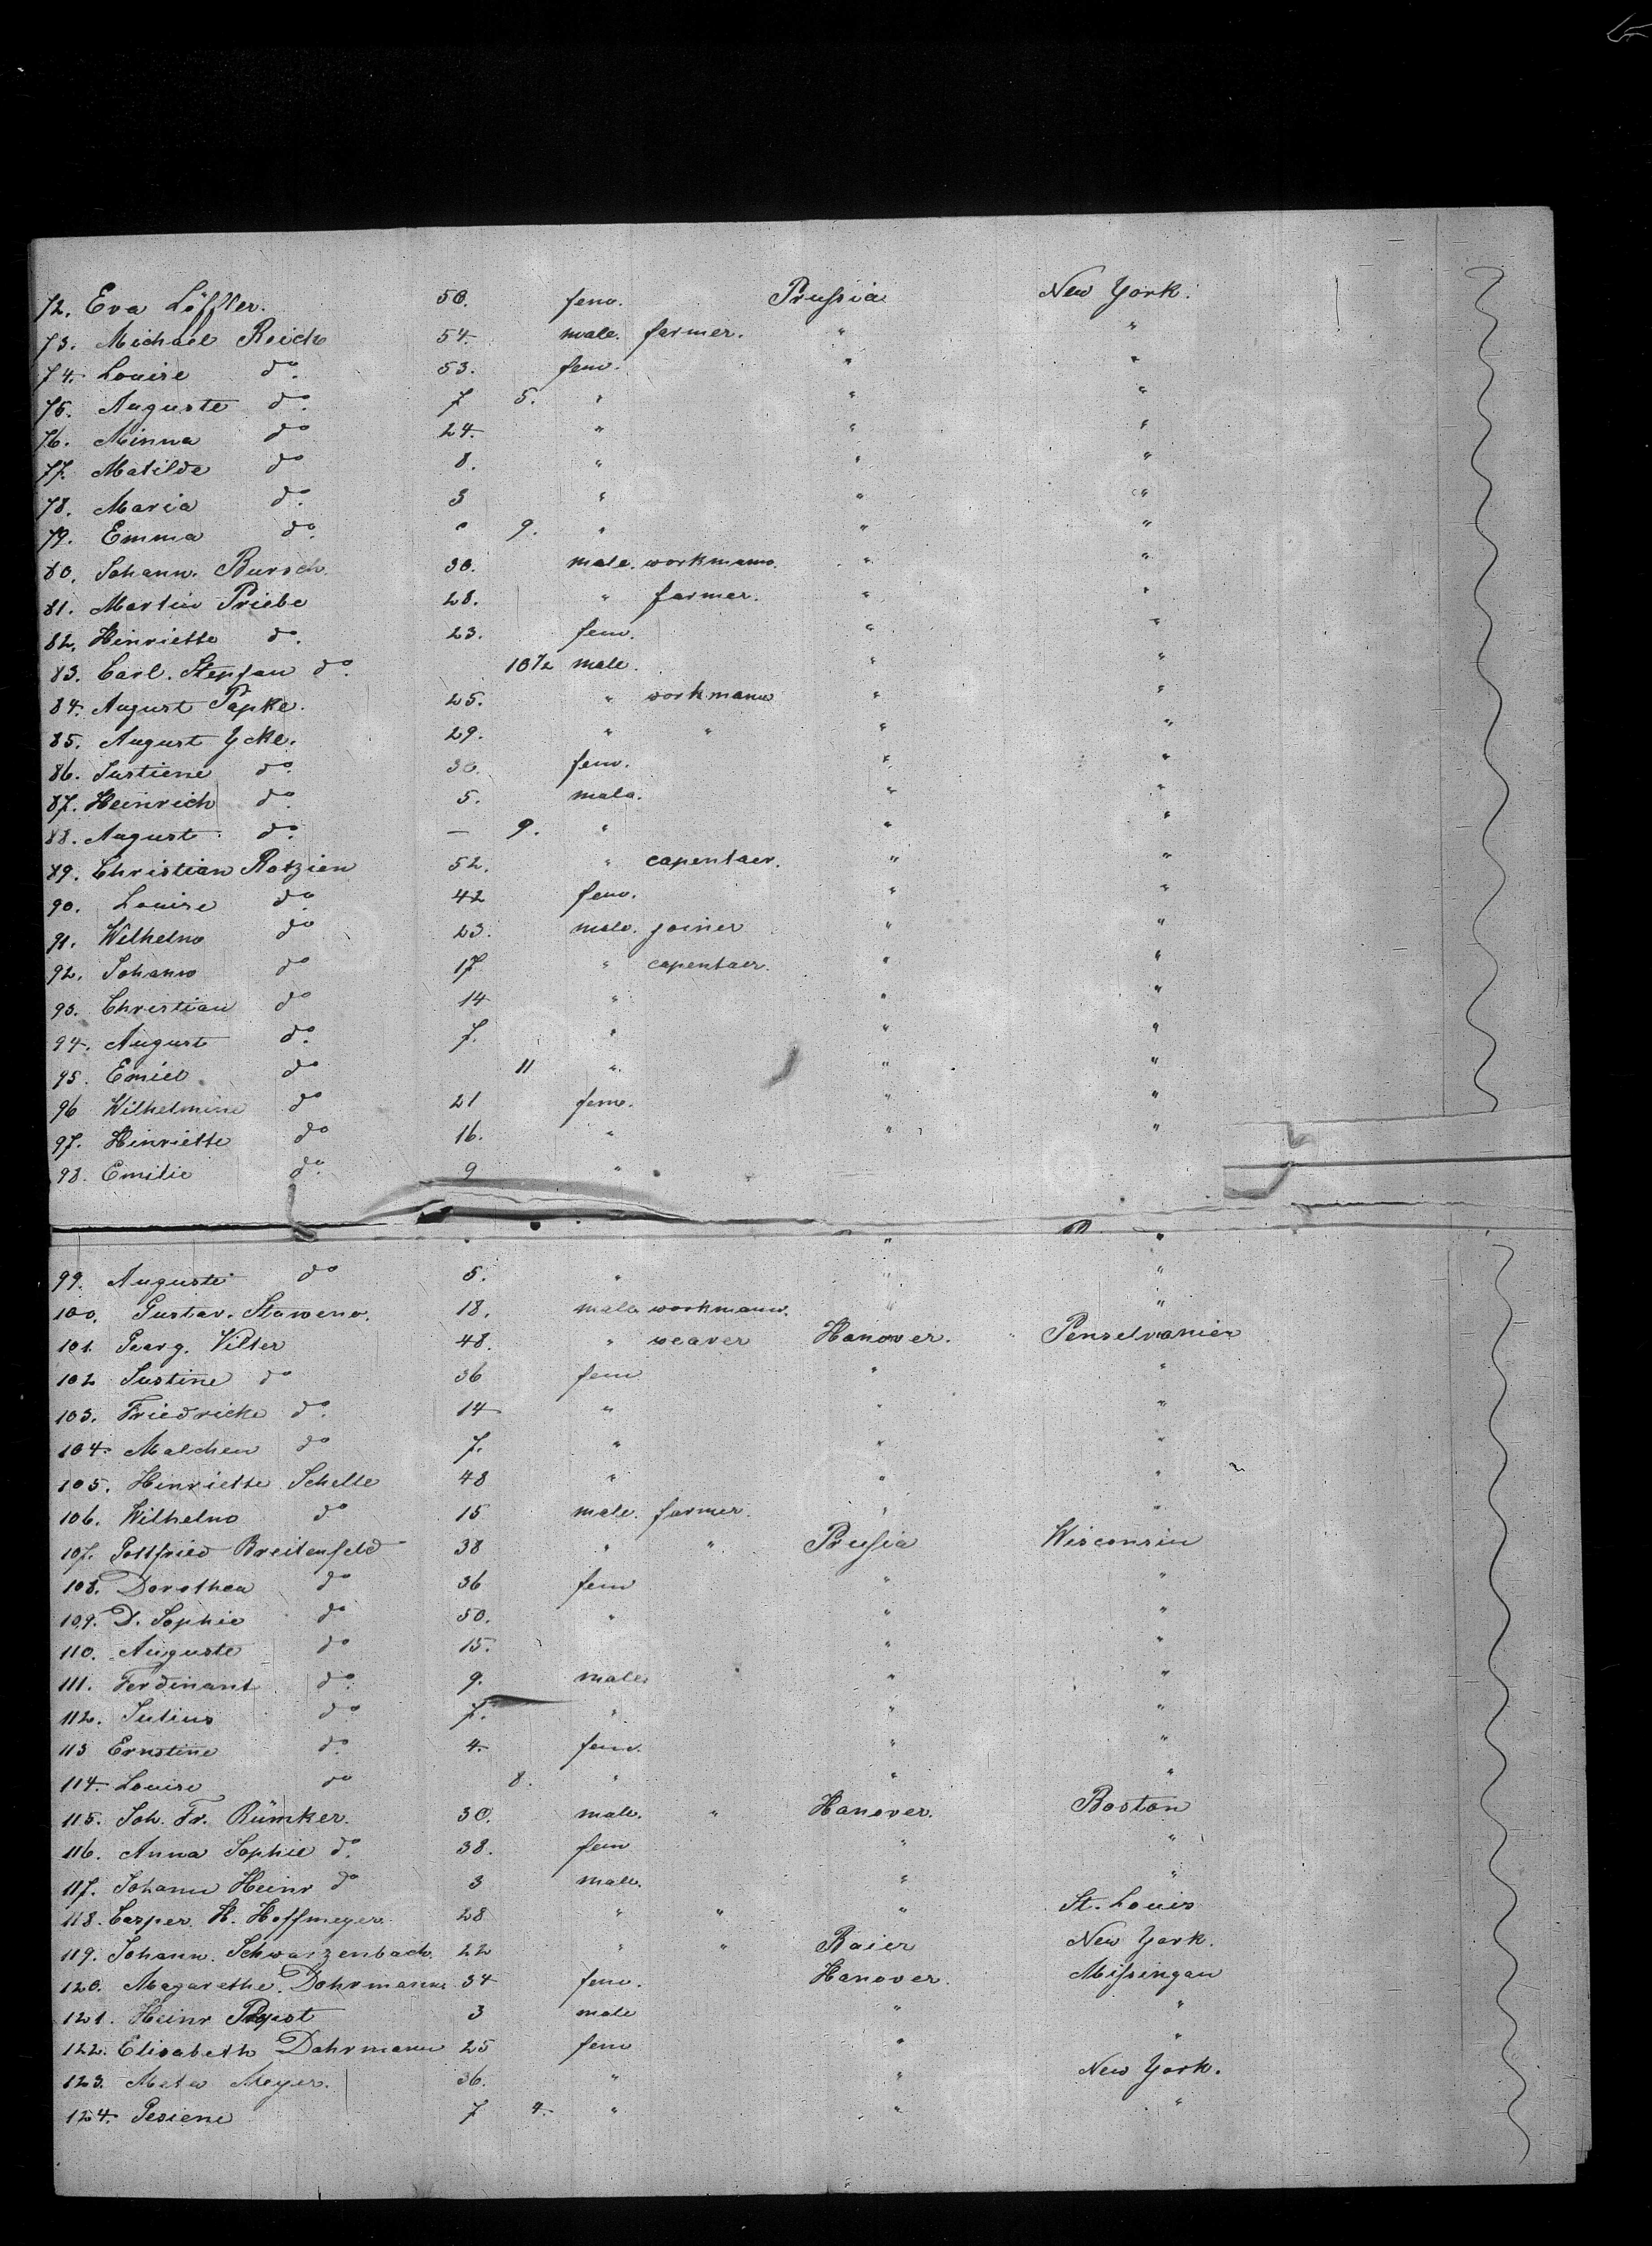 72. Eva Löffler. 50. fem. Prussia New York.
73. Michael Reich 54. male. farmer. " "
74. Louise do. 53. fem. " "
75. Auguste do. 7 5. " " "
76. Minna do 24. " " "
77. Matilde do 8. " " "
78. Maria do. 3 " " "
79. Emma do. " 9. " " "
80. Johann. Bursch. 30. male. workmann. " "
81. Martin Priebe 28. " farmer. " "
82. Henriette do. 23. fem. " "
83. Carl. Stepfan do. 10 1/2 male. " "
84. August Papke. 25. " workmann " "
85. August Ycke. 29. " " " "
86. Justiene do. 30. fem. " "
87. Heinrich do. 5. male. " "
88. August do. — 9. " " "
89. Christian Rotzien 52. " capentaer. " "
90. Louise do. 42 fem. " "
91. Wilhelm do 23. male. joiner " "
92. Johann do 17 " capentaer. " "
93. Christian do 14 " " "
94. August do. 7. " " "
95. Emiel do 11 " " "
96 Wilhelmine do 21 fem. " "
97. Henriette do 16. " " "
98. Emilie do. 9 " " "
99. Auguste do 5. " " "
100. Gustav. Staweno. 18. male workmann. " "
101. Georg. Vilter 48. " weaver Hanover. Penselvanien
102 Justine do 36 fem " "
103. Friedricke do. 14 " " "
104. Malchen do 7. " " "
105. Henriette Schelle 48 " " "
106. Wilhelm do 15 male. farmer. " "
107. Gottfried Breitenfeld 38 " " Prussia Wisconsin
108. Dorothea do 36 fem " "
109. D. Sophie do 50. " " "
110. Auguste do 15. " "
111. Ferdinant do. 9. male " "
112. Julius do. 7. " " "
113 Ernstine do. 4. fem. " "
114. Louise do 8. " " "
115. Joh. Fr. Rümker. 30. male. " Hanover. Boston
116. Anna Sophie do. 38. fem " "
117. Johann Heinr do 3 male. " "
118. Casper. H. Hoffmeyer. 28 " " " St. Louis
119. Johann. Schwarzenbach. 22 " " Baier New York.
120. Magarethe. Dohrmann 34 fem. Hanover. Missingan
121. Heinr 3 male " "
122. Elisabeth Dahrmann 25 fem " "
123. Meta Meyer. 36. " " New York.
124. Gesiene 7 4. " " "